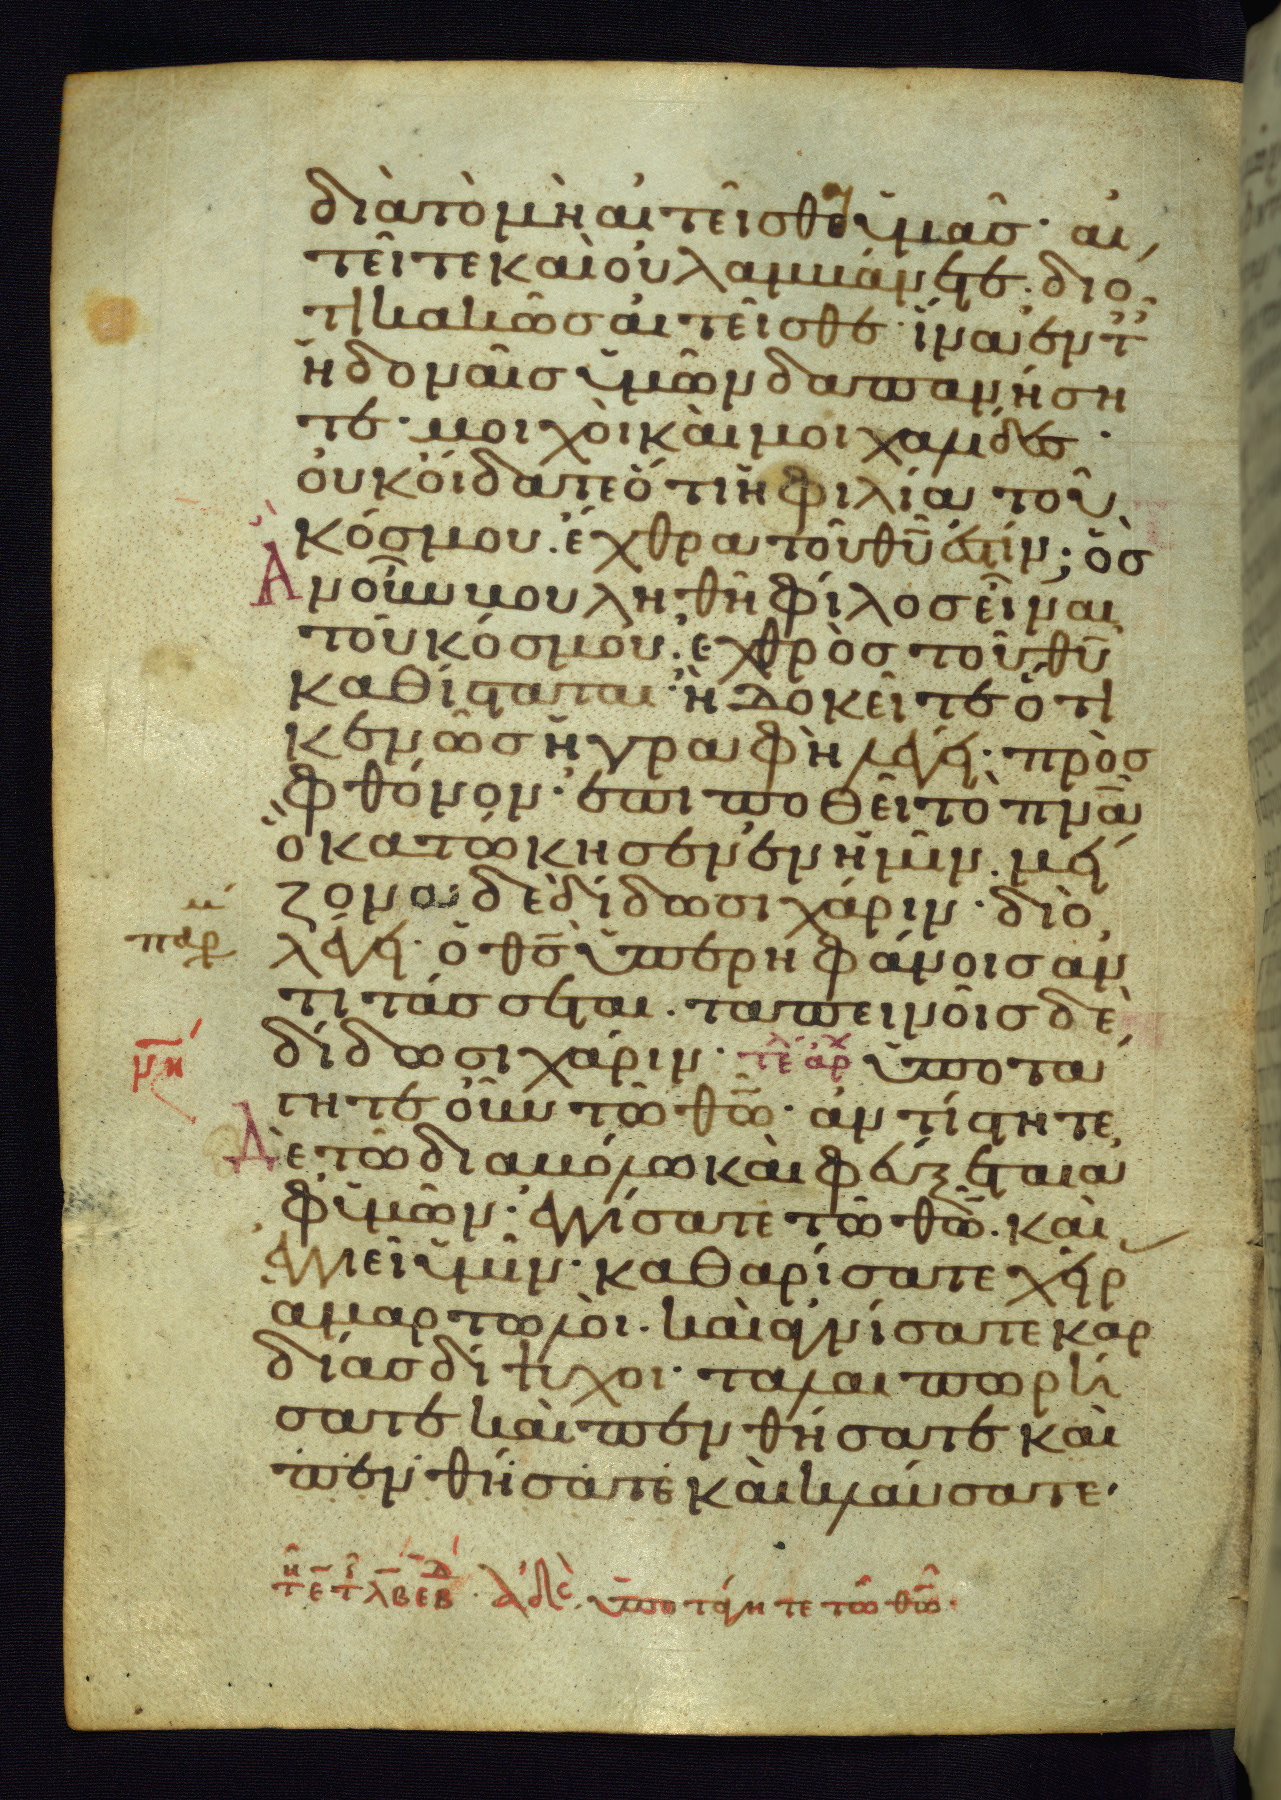 διὰ τὸ μὴ αἰτεῖσθαι ὑμᾶσ· αἰ
τεῖτε καὶ οὐ λαμβάνετε· διό
τι κακῶσ αἰτεῖσθε· ἵνα ἐν τ
ἡδοναῖσ ὑμῶν δαπανήση
τε· μοιχοὶ καὶ μοιχαλίδεσ·
οὐκ οἴδατε ὅτι ἡ φιλία τοῦ
κόσμου. ἔχθρα τοῦ θῦ ἐστίν; ὃσ
ἂν οὖν βουληθῆ φίλοσ εἶναι
τοῦ κόσμου. ἐχθρὸσ τοῦ θῦ
καθίσταται· ἢ δοκεῖτε ὅτι
κενῶσ ἡ γραφὴ λέγει· πρὸσ
φθόνον· ἐπιποθεῖ τὸ πνᾶ
ὃ κατώκησεν ἐν ἡμῖν. μεί
ζονα δὲ δίδωσι χάριν· διὸ
λέγει· ὁ θσ ὑπερηφάνοισ ἀν
τιτάσσεται. ταπεινοῖσ δὲ
δίδωσι χάριν· τε αρχ ὑποτά
γητε οὖν τῶ θῶ· ἀντίστητε
Δε τῶ διαβόλω καὶ φεύξεται ἀ
φ ὑμῶν· ἐγγίσατε τῶ θῶ. καὶ
ἐγγιεῖ ὑμῖν· καθαρίσατε χεῖρ
αμαρτωλοὶ. καὶ ἁγνίσατε καρ
δίασ δίψυχοι· ταλαιπωρή
σατε καὶ πενθήσατε καὶ
πενθήσατε καὶ κλαύσατε·
παρ
νη
ἀδε. ὑποτάγητε τῶ θῶ·